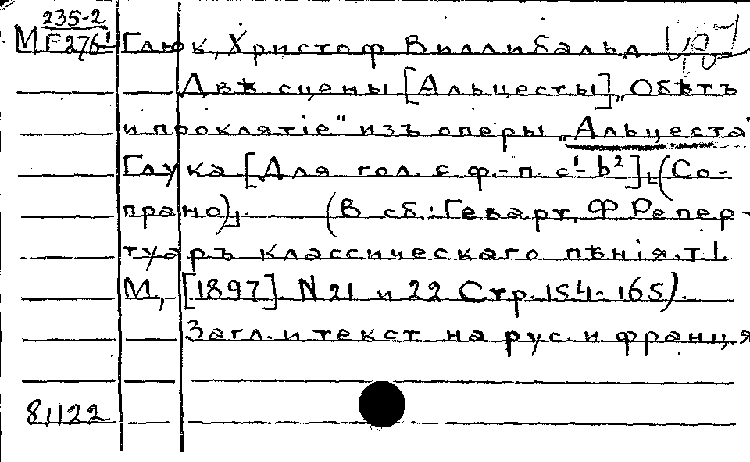 235-2
М Г276 Глюк, Христоф Виллибальд
Двѣ сцены [Альцесты] „Обѣтъ
и проклятіе" изъ оперы „Альцеста"
Глука [Для гол. с ф.-п. c¹-b²] (Со-
прано). (В сб.: Геварт, Ф Репер-
туаръ классическаго пѣнія. т I.
М., [1897] N 21 и 22 Стр. 154-165).
Загл. и текст на рус. и француз
81122